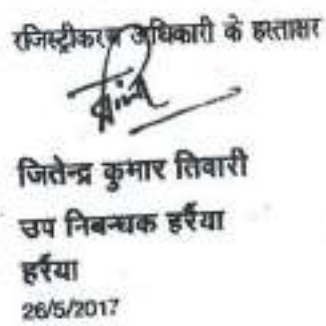 रजिस्ट्रीकरण अधिकारी के हस्ताक्षर
जितेन्द्र कुमार तिवारी
उप निबन्धक हर्रैया
हर्रैया
26/5/2017